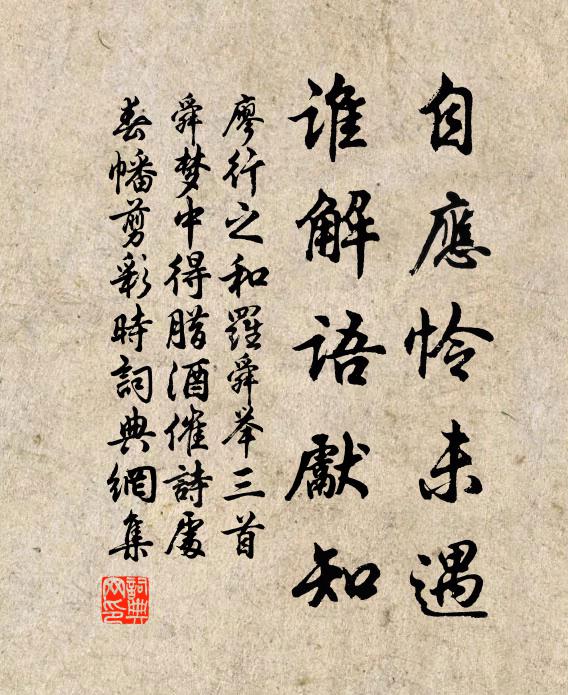 自應怜未遇
誰解語獻知
廖行之和羅舜举三首
舜梦中得腊酒催詩處
春幡剪彩時詞典網集
詞典
网印